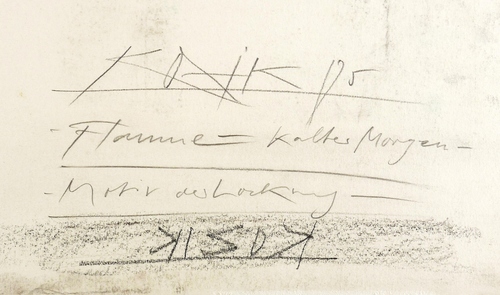 KOZIK 95
- Flamme = Kalter Morgen -
- Motiv der Lockung -
KOZIK